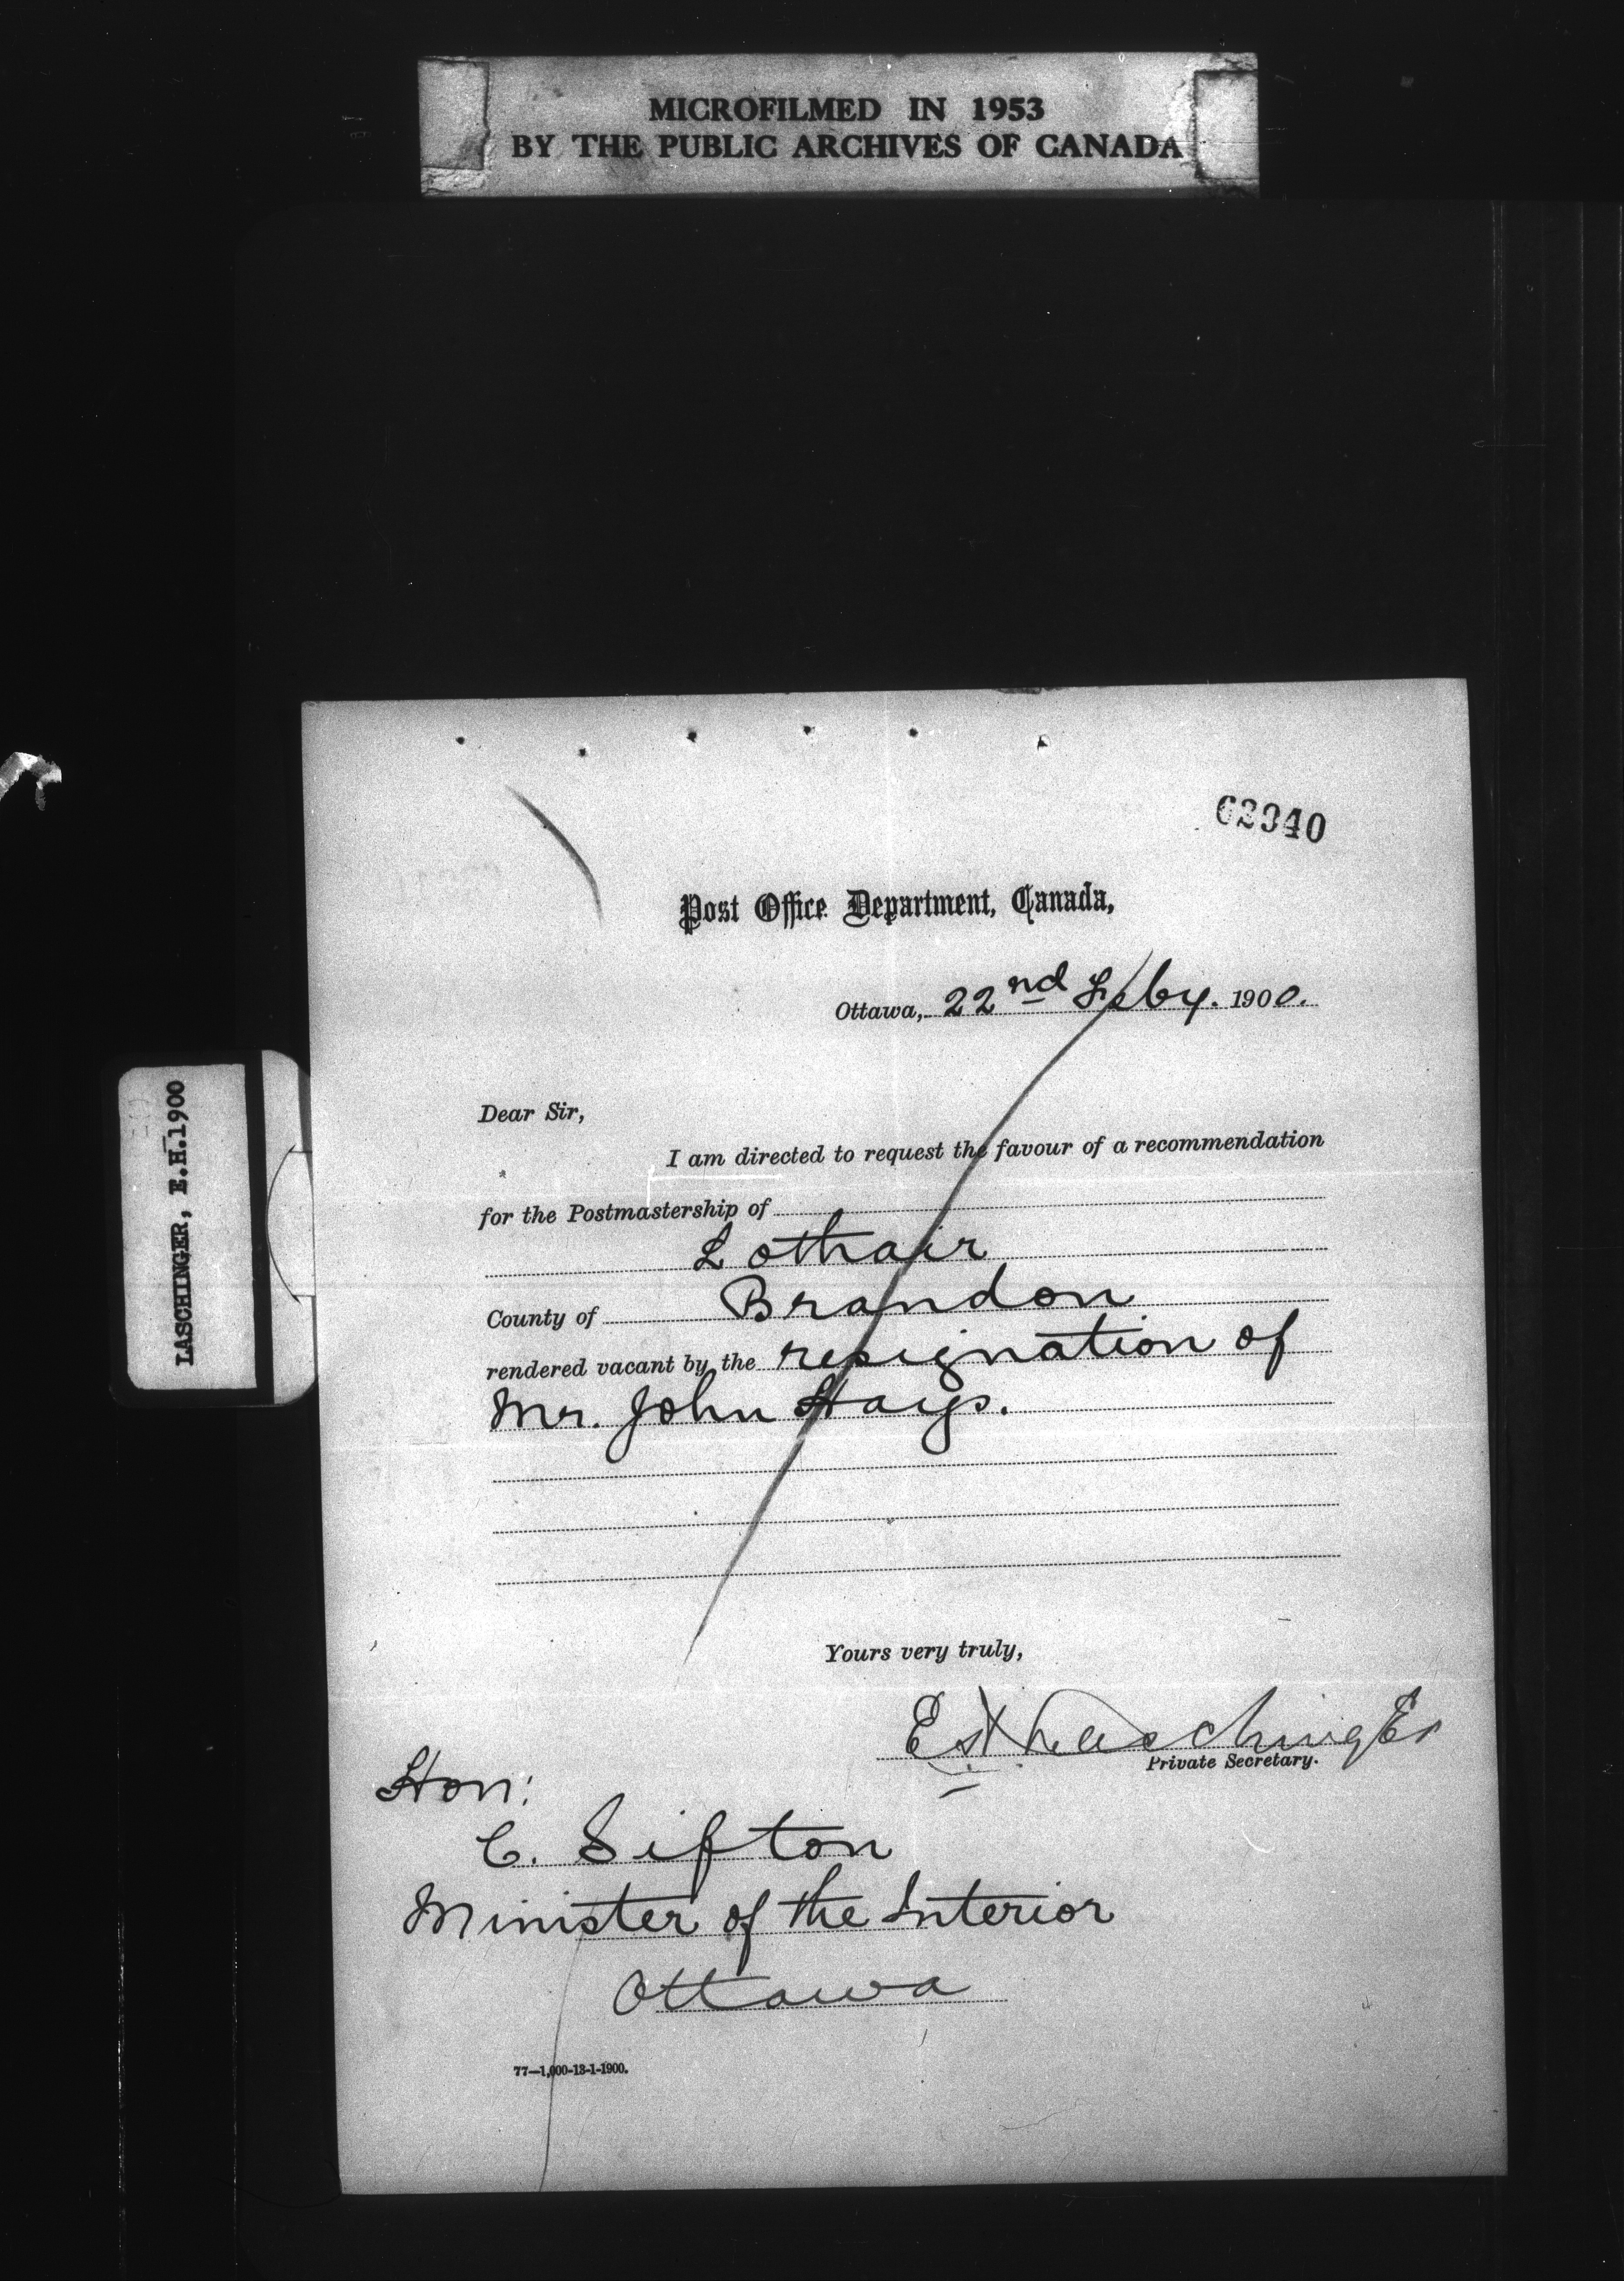 MICROFILMED IN 1953
BY THE PUBLIC ARCHIVES OF CANADA
LASCHINGER, E.H. 1900
62940
Post Office Department, Canada,
Ottawa, 22nd Feby. 1900.
Dear Sir,
I am directed to request the favour of a recommendation
for the Postmastership of
Lothair
County of Brandon
rendered vacant by the resignation of
Mr. John Hays.
Yours very truly,
E H Laschinger
Private Secretary.
Hon:
C. Sifton
Minister of the Interior
Ottawa
77—1,000-13-1-1900.